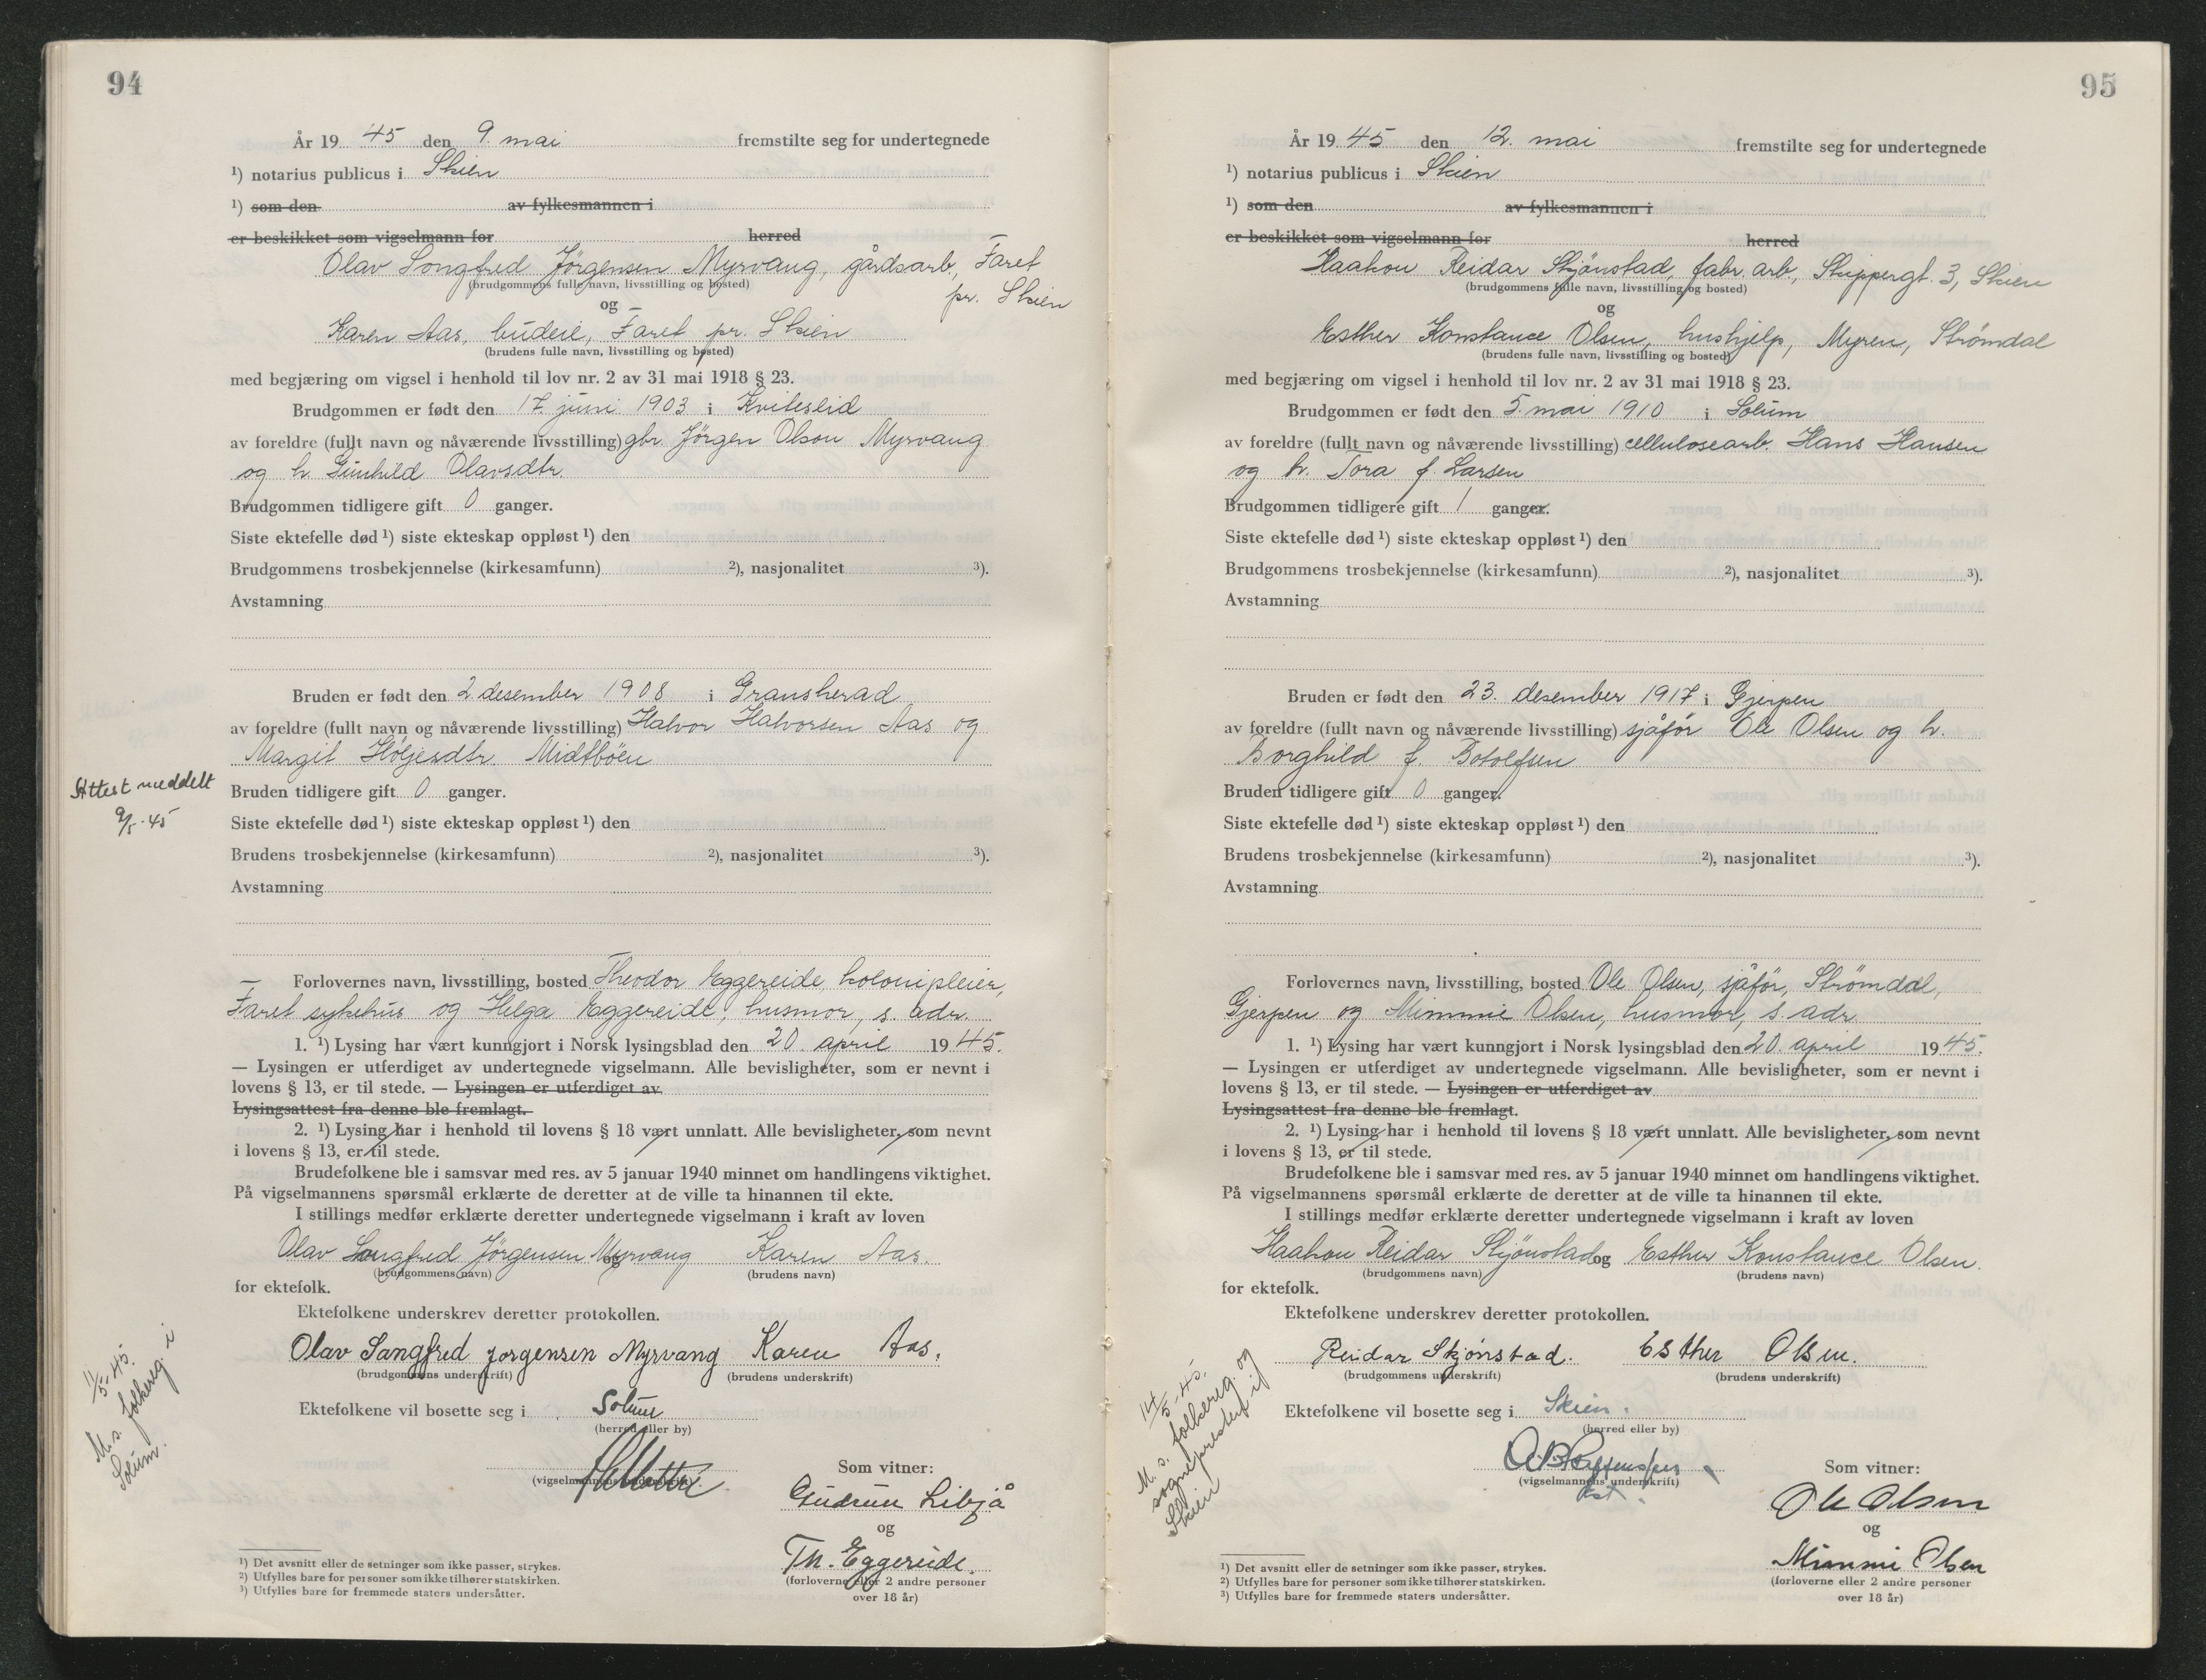 94
År 19 45 den 9. mai fremstilte seg for undertegnede
¹) notarius publicus i Skien
¹) som den av fylkesmannen i
er beskikket som vigselmann for herred
Olav Songfred Jörgensen Myrvang, gårdsarb, Faret
(brudgommens fulle navn, livsstilling og bosted)
pr. Skien
og
Karen Aas, budeie, Faret pr. Skien
(brudens fulle navn, livsstilling og bosted)
med begjæring om vigsel i henhold til lov nr. 2 av 31 mai 1918 § 23.
Brudgommen er født den 17. juni 1903 i Kviteseid
av foreldre (fullt navn og nåværende livsstilling) gbr. Jörgen Olson Myrvang
og h. Gunhild Olavsdtr.
Brudgommen tidligere gift 0 ganger.
Siste ektefelle død ¹) siste ekteskap oppløst ¹) den
Brudgommens trosbekjennelse (kirkesamfunn) ²), nasjonalitet ³).
Avstamning
Bruden er født den 2 desember 1908 i Gransherad
av foreldre (fullt navn og nåværende livsstilling) Halvor Halvorsen Aas og
Margit Höljesdtr. Midtböen
Attest meddelt
9/5-45
Bruden tidligere gift 0 ganger.
Siste ektefelle død ¹) siste ekteskap oppløst ¹) den
Brudens trosbekjennelse (kirkesamfunn) ²), nasjonalitet ³).
Avstamning
Forlovernes navn, livsstilling, bosted Theodor Eggereide, kolonipleier,
Faret sykehus og Helga Eggereide, husmor, s. adr.
1. ¹) Lysing har vært kunngjort i Norsk lysingsblad den 20. april 19 45.
— Lysingen er utferdiget av undertegnede vigselmann. Alle bevisligheter, som er nevnt i
lovens § 13, er til stede. — Lysingen er utferdiget av
Lysingsattest fra denne ble fremlagt.
2. ¹) Lysing har i henhold til lovens § 18 vært unnlatt. Alle bevisligheter, som nevnt
i lovens § 13, er til stede.
Brudefolkene ble i samsvar med res. av 5 januar 1940 minnet om handlingens viktighet.
På vigselmannens spørsmål erklærte de deretter at de ville ta hinannen til ekte.
I stillings medfør erklærte deretter undertegnede vigselmann i kraft av loven
Olav Songfred Jörgensen Myrvang og Karen Aas.
(brudgommens navn) (brudens navn)
for ektefolk.
Ektefolkene underskrev deretter protokollen.
Olav Sangfred Jorgensen Myrvang Karen Aas.
(brudgommens underskrift) (brudens underskrift)
11/5-45.
M.s. folkereg i
Solum.
Ektefolkene vil bosette seg i Solum
(herred eller by)
(vigselmannens underskrift)
Som vitner:
Gudrun Libjå
og
Th. Eggereide.
(forloverne eller 2 andre personer
over 18 år)
¹) Det avsnitt eller de setninger som ikke passer, strykes.
²) Utfylles bare for personer som ikke tilhører statskirken.
³) Utfylles bare for fremmede staters undersåtter.
95
År 19 45 den 12. mai fremstilte seg for undertegnede
¹) notarius publicus i Skien
¹) som den av fylkesmannen i
er beskikket som vigselmann for herred
Haakon Reidar Skjönstad, fabr. arb., Skippergt. 3, Skien
(brudgommens fulle navn, livsstilling og bosted)
og
Esther Konstance Olsen, hushjelp, Myren, Strömdal
(brudens fulle navn, livsstilling og bosted)
med begjæring om vigsel i henhold til lov nr. 2 av 31 mai 1918 § 23.
Brudgommen er født den 5. mai 1910 i Solum
av foreldre (fullt navn og nåværende livsstilling) cellulosearb. Hans Hansen
og h. Tora f. Larsen
Brudgommen tidligere gift 1 ganger.
Siste ektefelle død ¹) siste ekteskap oppløst ¹) den
Brudgommens trosbekjennelse (kirkesamfunn) ²), nasjonalitet ³).
Avstamning
Bruden er født den 23. desember 1917 i Gjerpen
av foreldre (fullt navn og nåværende livsstilling) sjåför Ole Olsen og h.
Borghild f. Botolfsen
Bruden tidligere gift 0 ganger.
Siste ektefelle død ¹) siste ekteskap oppløst ¹) den
Brudens trosbekjennelse (kirkesamfunn) ²), nasjonalitet ³).
Avstamning
Forlovernes navn, livsstilling, bosted Ole Olsen, sjåför, Strömdal,
Gjerpen og Mimmie Olsen, husmor, s. adr.
1. ¹) Lysing har vært kunngjort i Norsk lysingsblad den 20. april 19 45.
— Lysingen er utferdiget av undertegnede vigselmann. Alle bevisligheter, som er nevnt i
lovens § 13, er til stede. — Lysingen er utferdiget av
Lysingsattest fra denne ble fremlagt.
2. ¹) Lysing har i henhold til lovens § 18 vært unnlatt. Alle bevisligheter, som nevnt
i lovens § 13, er til stede.
Brudefolkene ble i samsvar med res. av 5 januar 1940 minnet om handlingens viktighet.
På vigselmannens spørsmål erklærte de deretter at de ville ta hinannen til ekte.
I stillings medfør erklærte deretter undertegnede vigselmann i kraft av loven
Haakon Reidar Skjönstad og Esther Konstance Olsen.
(brudgommens navn) (brudens navn)
for ektefolk.
Ektefolkene underskrev deretter protokollen.
Reidar Skjönstad. Esther Olsen.
(brudgommens underskrift) (brudens underskrift)
14/5-45.
M. s. folkereg. og
sogneprest i
Skien
Ektefolkene vil bosette seg i Skien.
(herred eller by)
(vigselmannens underskrift)
Som vitner:
Ole Olsen
og
Mimmi Olsen
(forloverne eller 2 andre personer
over 18 år)
¹) Det avsnitt eller de setninger som ikke passer, strykes.
²) Utfylles bare for personer som ikke tilhører statskirken.
³) Utfylles bare for fremmede staters undersåtter.